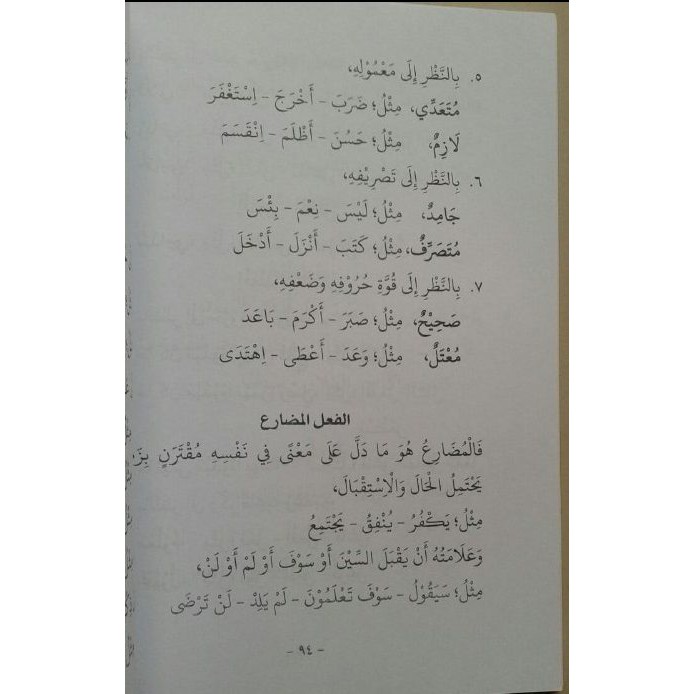 ٥. بِالنَّظْرِ إِلَى مَعْمُوْلِهِ،
مُتَعَدِّي، مِثْلُ؛ ضَرَبَ – أَخْرَجَ – اِسْتَغْفَرَ
لَازِمٌ، مِثْلُ؛ حَسُنَ – أَظْلَمَ – اِنْقَسَمَ
٦. بِالنَّظْرِ إِلَى تَصْرِيْفِهِ،
جَامِدٌ، مِثْلُ؛ لَيْسَ – نِعْمَ – بِئْسَ
مُتَصَرِّفٌ، مِثْلُ؛ كَتَبَ – أَنْزَلَ – أَدْخَلَ
٧. بِالنَّظْرِ إِلَى قُوَّةِ حُرُوْفِهِ وَضَعْفِهِ،
صَحِيْحٌ، مِثْلُ؛ صَبَرَ – أَكْرَمَ – بَاعَدَ
مُعْتَلٌّ، مِثْلُ؛ وَعَدَ – أَعْطَى – اِهْتَدَى
الفعل المضارع
فَالْمُضَارِعُ هُوَ مَا دَلَّ عَلَى مَعْنًى فِي نَفْسِهِ مُقْتَرَنٍ
يَحْتَمِلُ الْحَالَ وَالْاِسْتِقْبَالَ،
مِثْلُ؛ يَكْفُرُ – يُنْفِقُ – يَجْتَمِعُ
وَعَلَامَتُهُ أَنْ يَقْبَلَ السِّيْنَ أَوْ سَوْفَ أَوْ لَمْ أَوْ لَنْ،
مِثْلُ؛ سَيَقُوْلُ – سَوْفَ تَعْلَمُوْنَ – لَمْ يَلِدْ – لَنْ تَرْضَى
– ٩٤ –